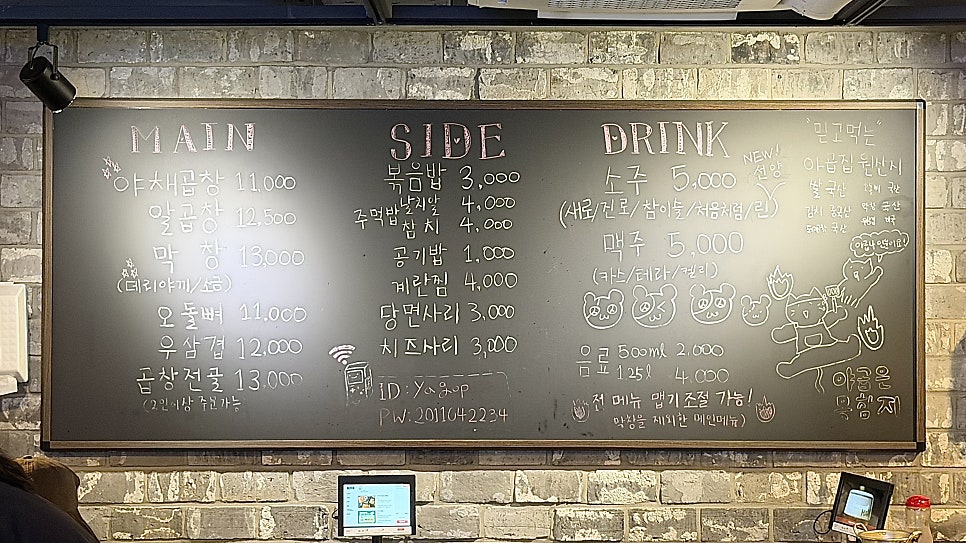 MAIN
야채곱창 11,000
알곱창 12,500
막창 13,000
(데리야끼/소금)
오돌뼈 11,000
우삼겹 12,000
곱창전골 13,000
(2인이상 주문가능
SIDE
볶음밥 3,000
주먹밥 날치알 4,000
참치 4,000
공기밥 1,000
계란찜 4,000
당면사리 3,000
치즈사리 3,000
ID: Yagop
PW: 2011042234
DRINK
NEW!
선양
소주 5,000
(새로/진로/참이슬/처음처럼/린)
맥주 5,000
(카스/테라/켈리)
음료 500ml 2,000
1.25l 4,000
전 메뉴 맵기 조절 가능!
막창을 제외한 메인메뉴)
"믿고먹는"
야곱집 원산지
쌀 국산
김치 중국산
막창 국산
오돌뼈 국산
야곱은